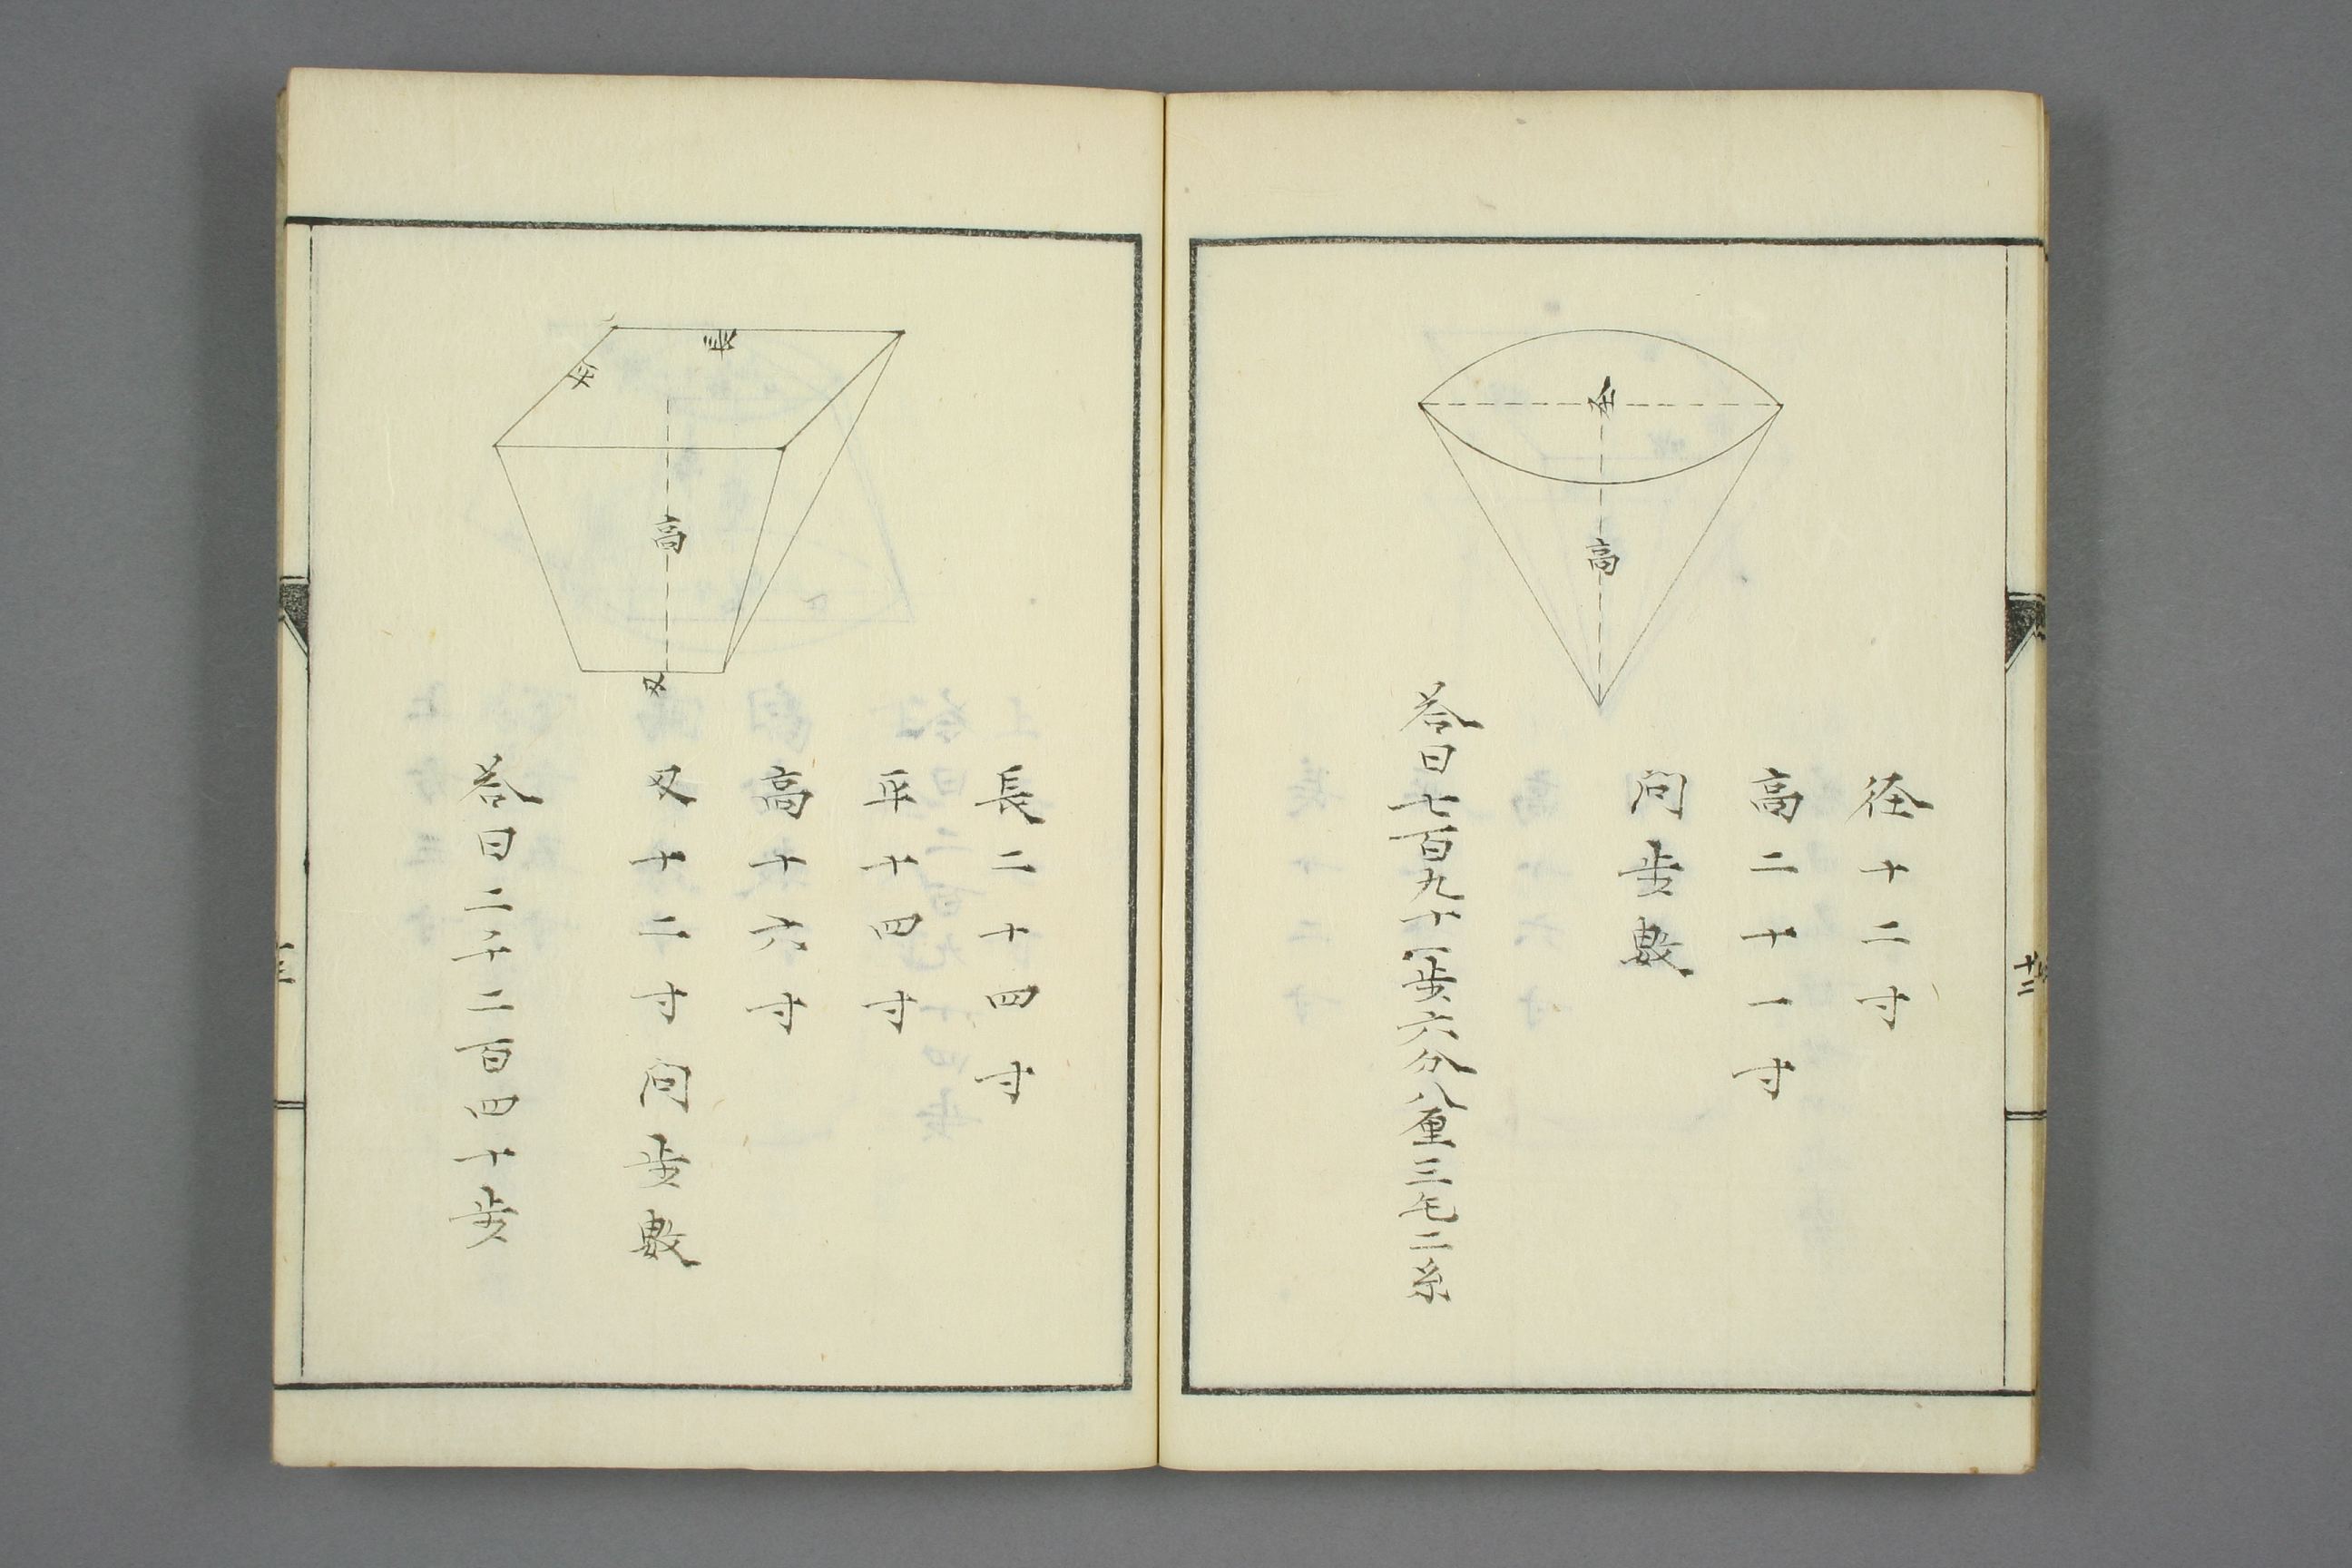 径
高
径十二寸
高二十一寸
問歩數
荅曰七百九十一歩六分八厘三毛二糸
十二
長
平
高
刄
長二十四寸
平十四寸
高十六寸
刄十二寸問歩數
荅曰二千二百四十歩